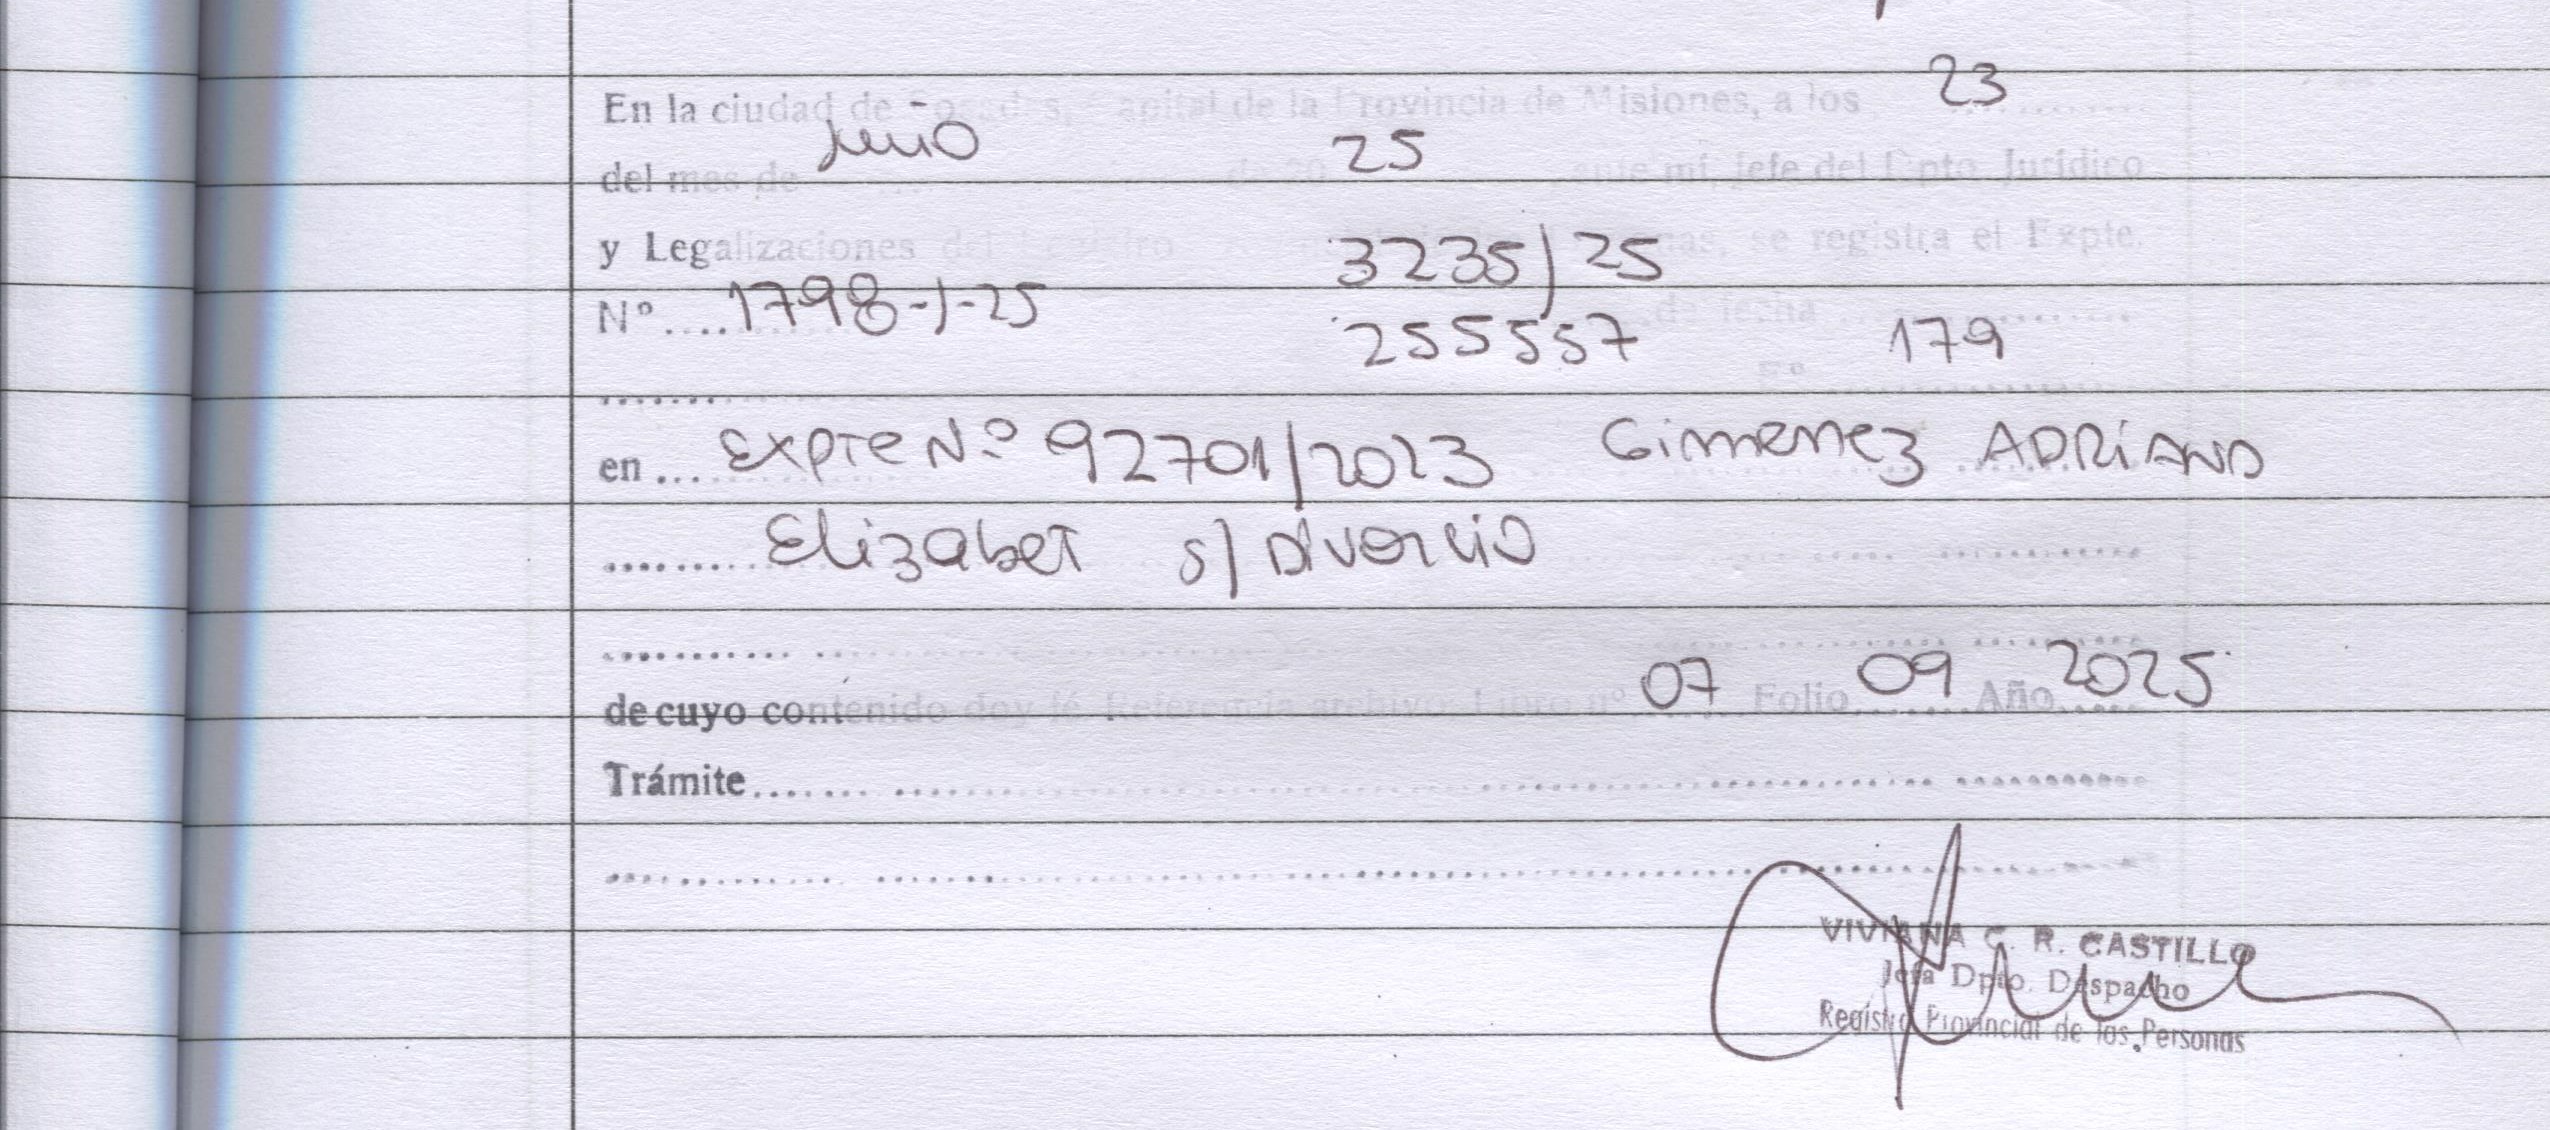 23
En la ciudad de Posadas, Capital de la Provincia de Misiones, a los
Junio 25
del mes de ... de 20 ante mí, Jefe del Dpto. Jurídico
3235/25
y Legalizaciones del Registro de las Personas, se registra el Expte.
Nº.... 1798-1-25 de fecha
255557 179
Fº
en... Expte Nº 92701/2023 Gimenez ADRIANA
Elizabet s/ Divorcio
de cuyo contenido doy fé. Referencia archivo: Libro nº 07 Folio 09 Año 2025
Trámite
VIVIANA C. R. CASTILLO
Jefa Dpto. Despacho
Registro Provincial de las Personas